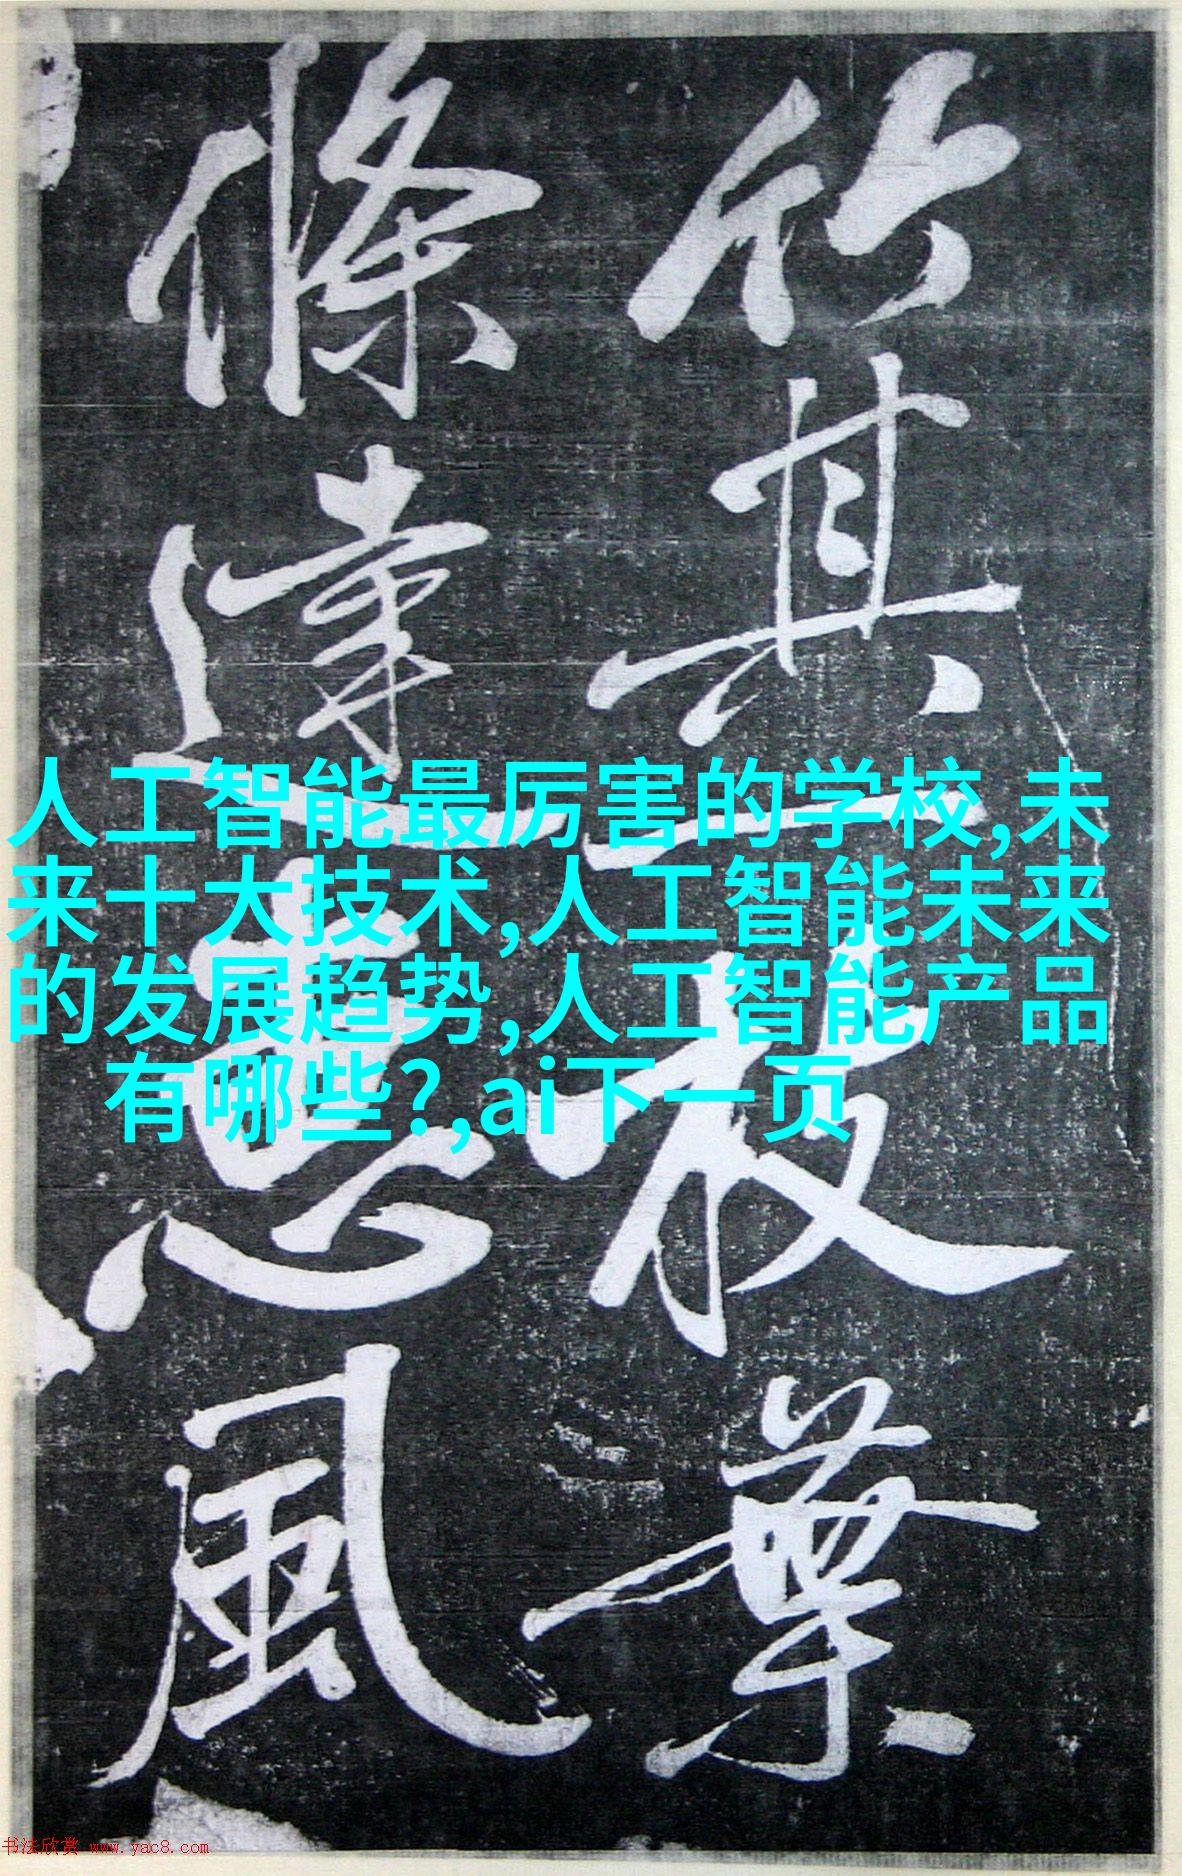 竹其枝葉
條達惠風
人工智能最厉害的学校,未
来十大技术,人工智能未来
的发展趋势,人工智能产品
有哪些?,ai下一页
书法欣赏 www.yac8.com